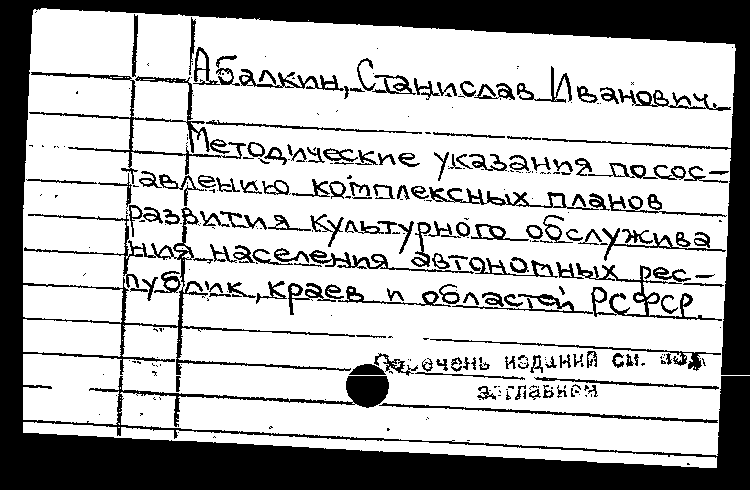 Абалкин, Станислав Иванович.
Методические указания по сос-
тавлению комплексных планов
развития культурного обслужива
ния населения автономных рес-
публик, краев и областей РСФСР.
Перечень изданий см. под
заглавием